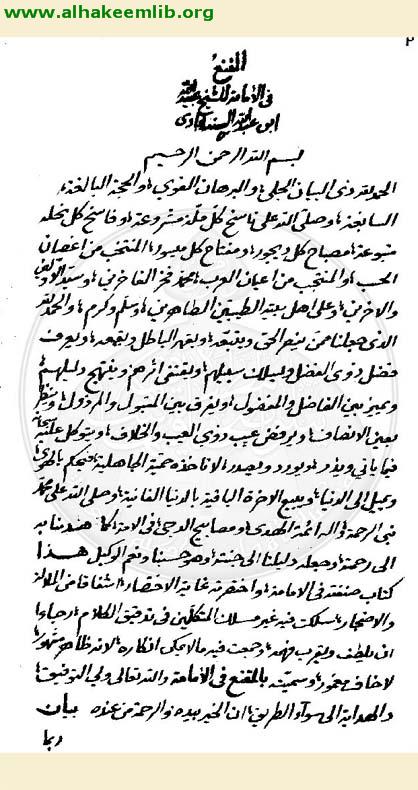 www.alhakeemlib.org
٢
المقنع
في الامامة للشيخ عبيد الله
ابن عبد الله السدابادى
بسم الله الرحمن الرحيم
الحمد لله ذى البيان الجلى والبرهان القوي والحجة البالغة
السابغة وصلى الله على ناسخ كل ملة مشروعة وفاسخ كل نحلة
متبوعة مصباح كل ديجور ومفتاح كل ميسور المنتخب من اغصان
الحسب والمنتجب من اعيان العرب محمد فخر الفاخرين وسيد الاولين
والاخرين وعلى اهل بيته الطيبين الطاهرين وسلم وكرم والحمد لله
الذى جعلنا ممن ينصر الحق ويتبعه ويقهر الباطل ويقمعه ويعرف
فضل ذوى الفضل ويسلك سبيلهم ويقتفى اثرهم وينهج دليلهم
ويميز بين الفاضل والمفضول ويفرق بين المقبول والمرذول وينظر
بعين الانصاف ويرفض عيب ذوي العيب والخلاف ويتوكل على الله
فيما ياتي ويذر ويورد ويصدر لا تاخذه حمية الجاهلية فيحكم بالهوى
ويميل الى الدنيا ويبيع الاخرة الباقية بالدنيا الفانية وصلى الله على محمد
نبى الرحمة وآله ائمة الهدى ومصابيح الدجى في الامة كما هدانا به
الى رحمته وجعله دليلنا الى جنته وهو حسبنا ونعم الوكيل هذا
كتاب صنفته في الامامة واختصرته غاية الاختصار اشفاقا من الملالة
والاضجار سلكت فيه غير مسلك المتكلمين في تدقيق الكلام رجاء
ان يلطف ويقرب فهمه وجمعت فيه ما لا يمكن انكاره لانه ظاهر مشهور
لا خاف مغمور وسميته بالمقنع في الامامة والله تعالى ولي التوفيق
والهداية الى سواء الطريق ان الخير بيده والرحمة من عنده بيان